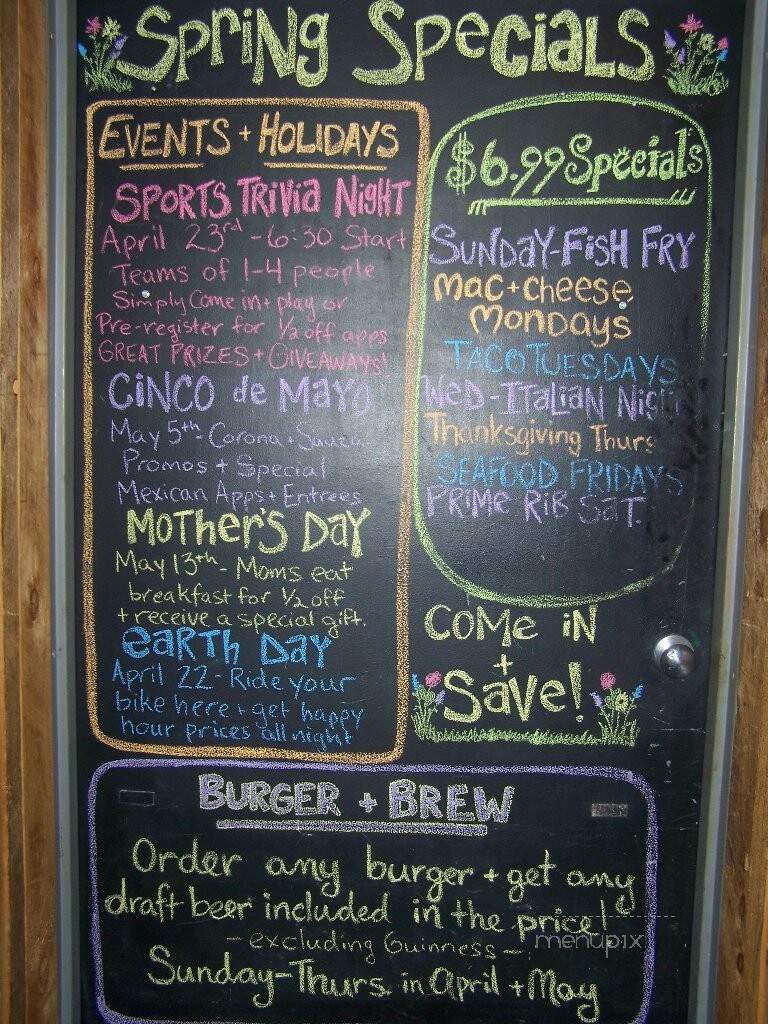 Spring Specials
EVENTS + HOLIDAYS
SPORTS TRiViA NigHT
April 23rd - 6:30 Start
Teams of 1-4 people
Simply Come in + play or
Pre-register for 1/2 off apps
GREAT PRIZES + GIVEAWAYS!
CiNCO de MAYO
May 5th - Corona + Sauza
Promos + Special
Mexican Apps + Entrees
MOTHER'S DAY
May 13th - Moms eat
breakfast for 1/2 off
+ receive a special gift.
eaRTh DaY
April 22 - Ride your
bike here + get happy
hour prices all night
$6.99 Specials
SUNDAY-FiSH FRY
Mac + cheese
MONDAYS
TACO TUESDAYS
WED - ITaLiAN NiGH
Thanksgiving Thurs
SEAFOOD FRIDAYS
PRiMe RiB SaT.
COMe iN
+
Save!
BURGER + BREW
Order any burger + get any
draft beer included in the price!
- excluding Guinness -
Sunday-Thurs. in April + May
menupix